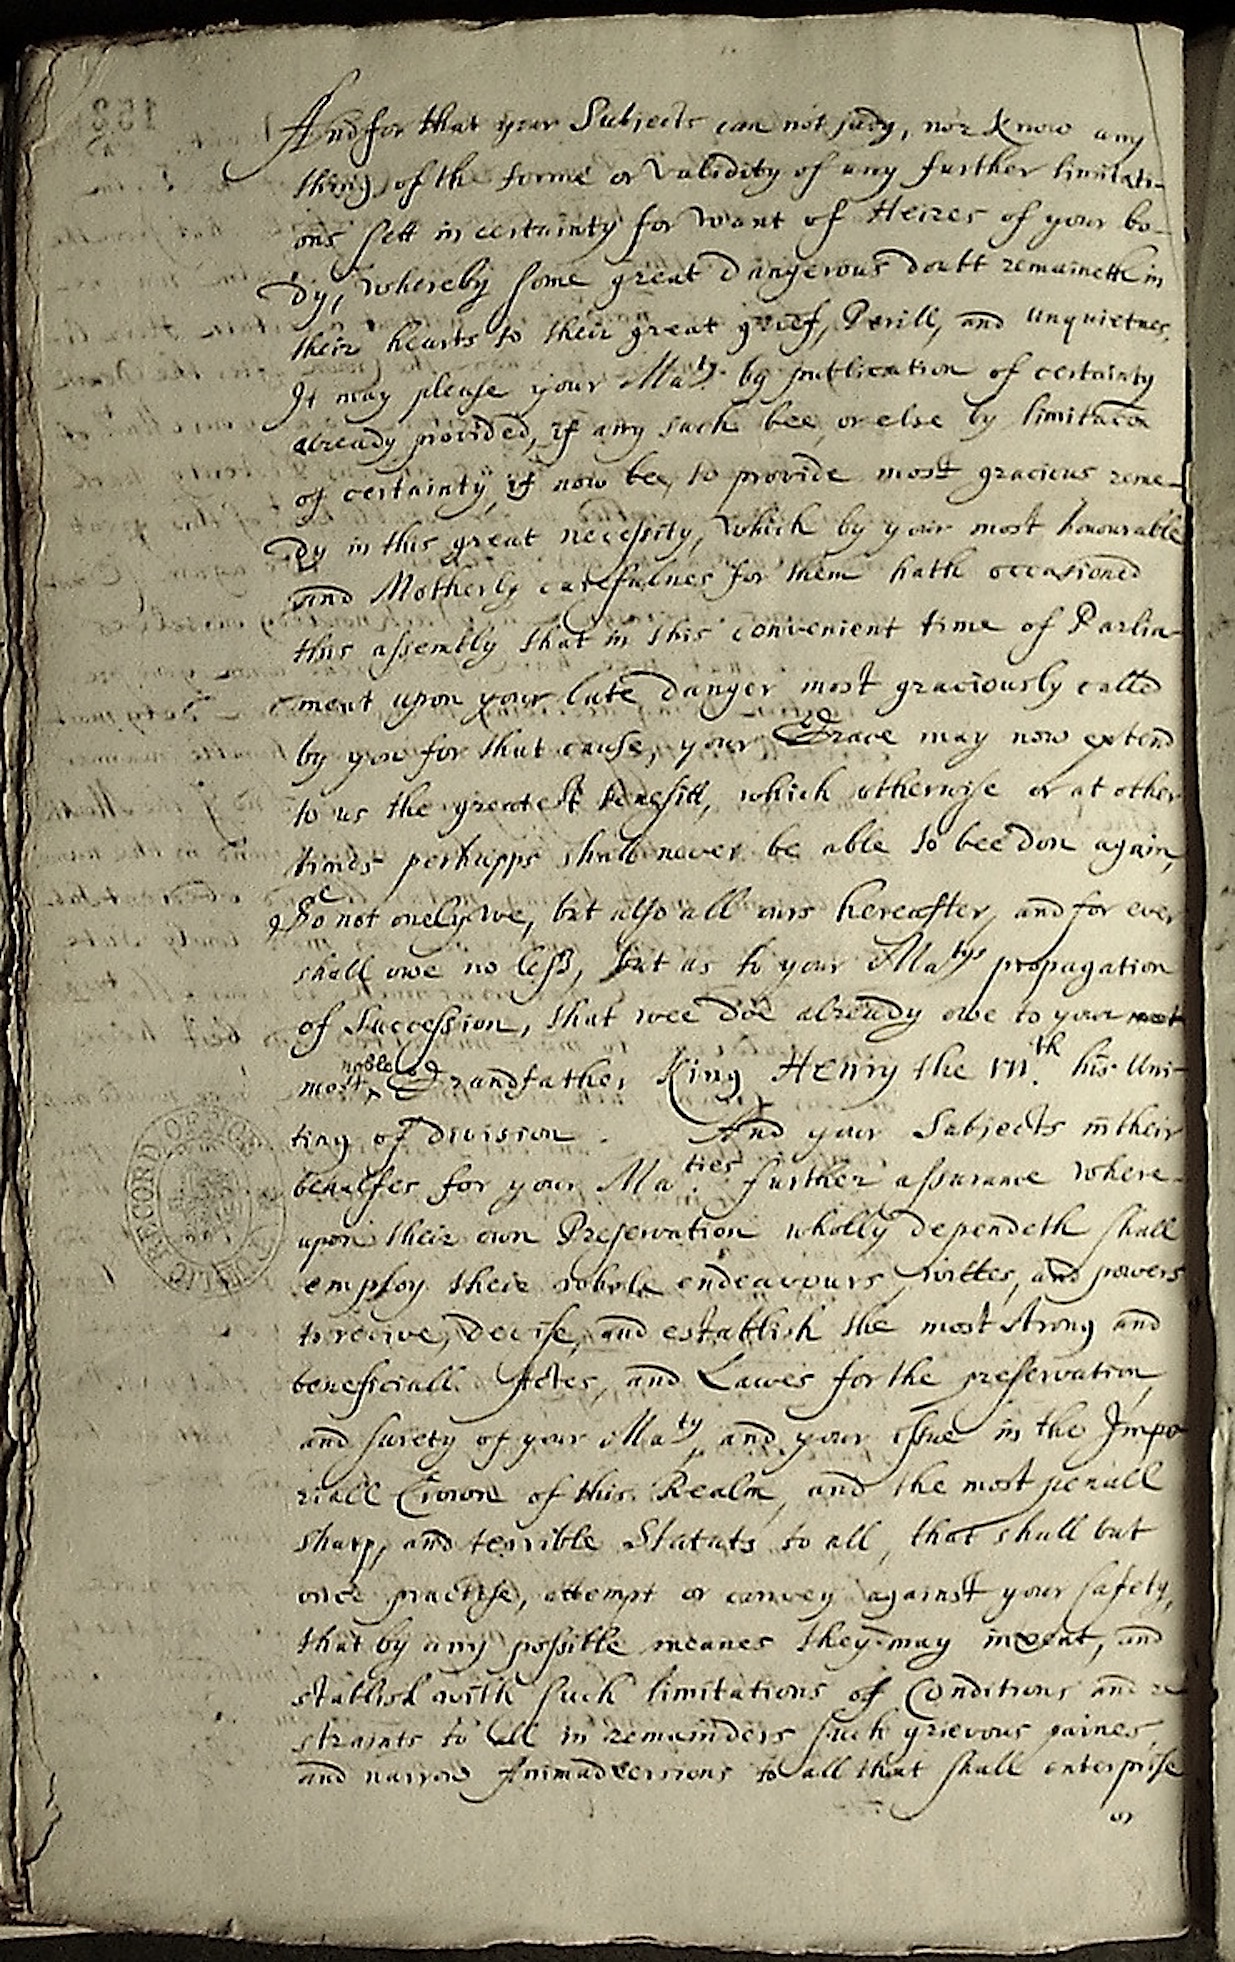 And for that your Subjects can not judg, nor know any
thing of the forme or Validity of any further limitati-
ons sett in certainty for want of Heires of your bo-
dy, whereby some great dangerous doubt remaineth in
their hearts to their great grief, Perill, and unquietnes,
It may please your Maty. by publication of certainty
already provided, if any such bee, or else by limitacon
of certainty, if now bee, to provide most gracious reme-
dy in this great necessity, which by your most honourable
and Motherly carefulnes for them hath occasioned
this assembly that in this convenient time of Parlia-
ment upon your late danger most graciously called
by you for that cause, your Grace may now extend
to us the greatest benefitt, which otherwise or at other
times perhapps shall never be able to bee don again,
So not onely we, but also all ours hereafter, and for ever
shall owe no less, but as to your Matys propagation
of Succession, that wee doe already owe to your most
most noble Grandfather King Henry the VII.th his Uni-
ting of division. And your Subjects in their
behalfes for your Ma.ties further assurance where-
upon their own Preservation wholly dependeth shall
employ their whole endeavours, wittes, and powers
to revive, devise, and establish the most strong and
beneficiall Actes, and Lawes for the preservation,
and surety of your Maty, and your issue in the Impe
riall Crown of this Realm, and the most penall
sharp, and terrible Statuts to all, that shall but
once practise, attempt or convey against your safety,
that by any possible meanes they may invent, and
stablish with such limitations of Conditions and re
straints to all in remainders such grievous paines
and narrow Animadversions to all that shall enterprise
or
153
PUBLIC RECORD OFFICE